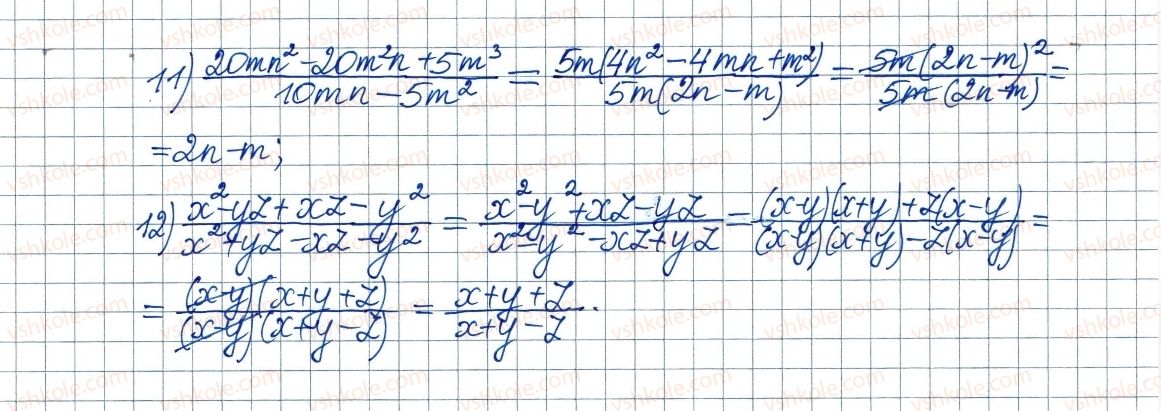 11) (20mn² - 20m²n + 5m³)/(10mn - 5m²) = 5m(4n² - 4mn + m²)/5m(2n - m) = 5m(2n - m)²/5m(2n - m) =
= 2n - m;
12) (x² - yz + xz - y²)/(x² + yz - xz - y²) = (x² - y² + xz - yz)/(x² - y² - xz + yz) = ((x - y)(x + y) + z(x - y))/((x - y)(x + y) - z(x - y)) =
= (x - y)(x + y + z)/(x - y)(x + y - z) = (x + y + z)/(x + y - z).
vshkole.com